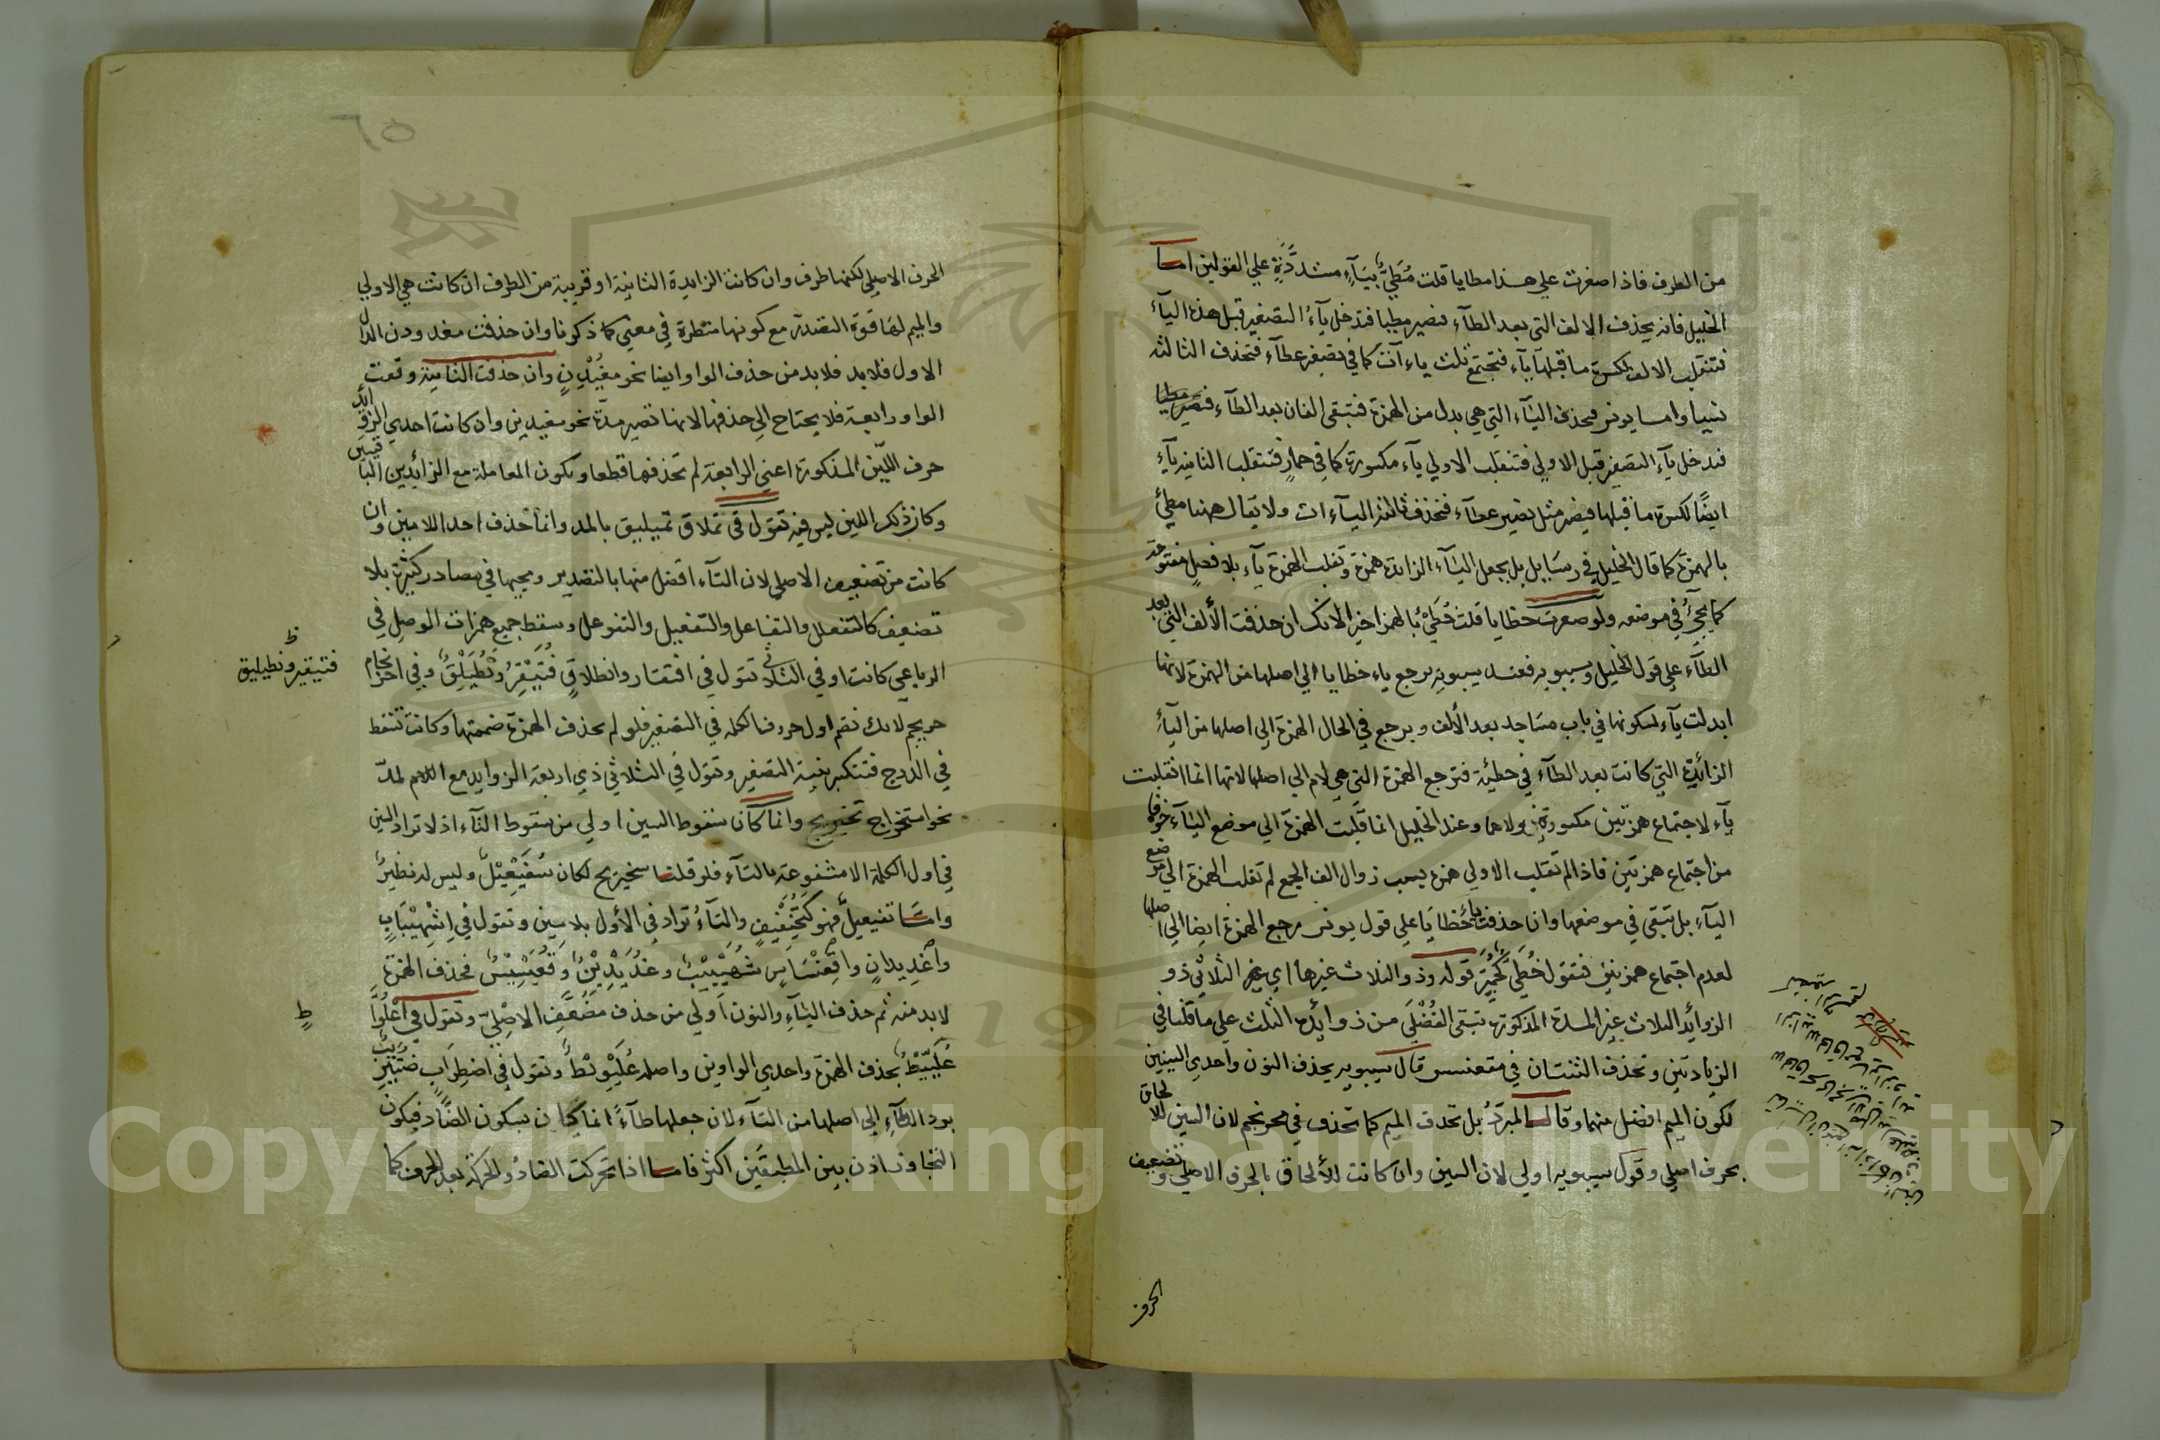 من الطرف فاذا صغرت علي هذا مطايا قلت مُطَيٌّ بيَآءٍ مشدَّدَةٍ علي القولين امــا
الخليل فانه يحذف الالف التي بعد الطآء فيصير مطيا فتدخل يآءُ التصغير قبل هذه اليآء
فتنقلب الالف لكسرة ما قبلها يآء فتجتمع ثلث ياءآت كما في تصغير عطآء فتحذف الثالثه
نسيا وامــا يونس فيحذف اليآء التي هي بدل من الهمزة فتبقي الفان بعد الطآء فتصير مطايا
فتدخل يآء التصغير قبل الاولي فتنقلب الاولي يآء مكسورة كما في حمار فتنقلب الثانيه يآء
ايضًا لكسرة ما قبلها فيصير مثل تصغير عطآء فتحذف ثالثة اليآءات ولا يقال ههنا مطئ
بالهمزة كما قال الخليل في رسَايل بل يجعل اليآء الزائدة همزة وتقلب الهمزة يآء بلا فصل مفتوحة
كما يجئُ في موضعه ولو صغرت خطايا قلت خُطَيْئٌ بالهمز اخيرا لانك ان حذفت الألف التي بعد
الطآء علي قول الخليل وسيبويه فعند سيبويه يرجع ياء خطايا الي اصلها من الهمزة لانها
ابدلت يآء لكونها في باب مسَاجد بعد الألف ويرجع في الحال الهمزة الي اصلها من اليآءِ
الزائدة التي كانت بعد الطآء في خطيئة فترجع الهمزة التي هي لام الي اصلها لانها انما انقلبت
يآء لاجتماع همزتين مكسورة اولاهما وعند الخليل انما قلبت الهمزة الي موضع اليآء خوفا
من اجتماع همزتين فاذا لم تقلب الاولي همزة بسبب زوال الف الجمع لم تقلب الهمزة الي موضع
اليآء بل تبقي في موضعها وان حذفت يا خطايَا علي قول يونس رجع الهمزة ايضا الي اصلها
لعدم اجتماع همزتين فتقول خُطَيِّئٌ كحُمَيِّرٍ قوله وذو الثلاث غيرها اي غير الثلاثي ذو
الزوائد الثلاث غير المدة المذكورة تبقي الفُضْلَي من زوائده الثلث علي ما قلنا في
الزيادتين وتحذف الثنتان في مقعنسس قال سيبويه يحذف النون واحدي السينين
لكون الميم افضل منهما وقال المبردُ بل تحذف الميم كما تحذف في محرنجم لان السين للالحاق
بحرف اصلي وقول سيبويه اولي لان السين وان كانت للألحاق بالحرف الاصلي وتضعيف
الحرف
الحرف الاصلي لكنها طرف وان كانت الزايدة الثانية او قريبة من الطرف ان كانت هي الاولي
والميم لها قوة التقدم مع كونها مطردة في معني كما ذكرنا وان حذفت مغدودن الدال
الاول فلا بد فلا بد من حذف الواو ايضا نحو مغُيْدِنٍ وان حذفت الثانية وقعت
الواو رابعة فلا يحتاج الي حذفها لانها تصير مدّة نحو مغيدين وان كانت احدي الزوائد
حرف اللّين المذكورة اعني الرابعة لم تحذفها قطعا وتكون المعاملة مع الزائدين الباقيين
وكان ذكر اللين ليس فيه تقول في تملاق تميليق بالمد وانما تحذف احد اللامين وان
كانت من تضعيف الاصلي لان التآء افضل منها بالتصدير ومجيها في مصادر كثيرة بلا
تضعيف كالتفعلل والتفاعل والتفعيل والتفوعل وسقط جميع همزات الوصل في
الرباعي كانت او في الثلاثي تقول في افتقار وانطلاقٍ فُتَيْقِيرٌ ونُطَيْلِقٌ وفي احرنجام
حريجم لانك تضم اول حروف الكلمه في التصغير فلو لم يحذف الهمزة ضممتها وكانت تسقط
في الدرج فتنكسر بنية التصغير وتقول في الثلاثي ذي اربعة الزوايد مع اللام لمدّ
نحو استخراج تخيريج وانما كان سقوط السين اولي من سقوط التآء اذ لا تزاد السين
في اول الكلمة الا مشفوعة بالتآء فلو قلنا سخيريج لكان سُفَيْعِيْلٌ وليس له نظير
وامّــا تفيعيل فهو كتُجَيْفِيفٍ والتآءُ تزاد في الأول بلا سين وتقول في اِشْهِيْبَابٍ
واغْدِيدانٍ واقْعِنْسَاسٍ شُهَيْبِيْبٌ وغُدَيْدِيْنٌ وقُعَيْسِيْسٌ فحذف الهمزة
لا بد منه ثم حذف اليآءِ والنون اَولي من حذف مضَعَّف الاصليّ وتقول في اعْلُوَّاط
عُلَيِّيْطٌ بحذف الهمزة واحدي الواوين واصله عُلَيْوِيْطٌ وتقول في اضطِرَابٍ ضتَيْرِيْب
برد الطآءِ الي اصلها من التآء لان جعلها طآءً انما كان بسكون الضَّاد فيكون
التجاوز اذن بين المطبقين اكثر فامــا اذا تحركت الضادُ والحركة بعد الحرف كما
فتيقير ونطيليق